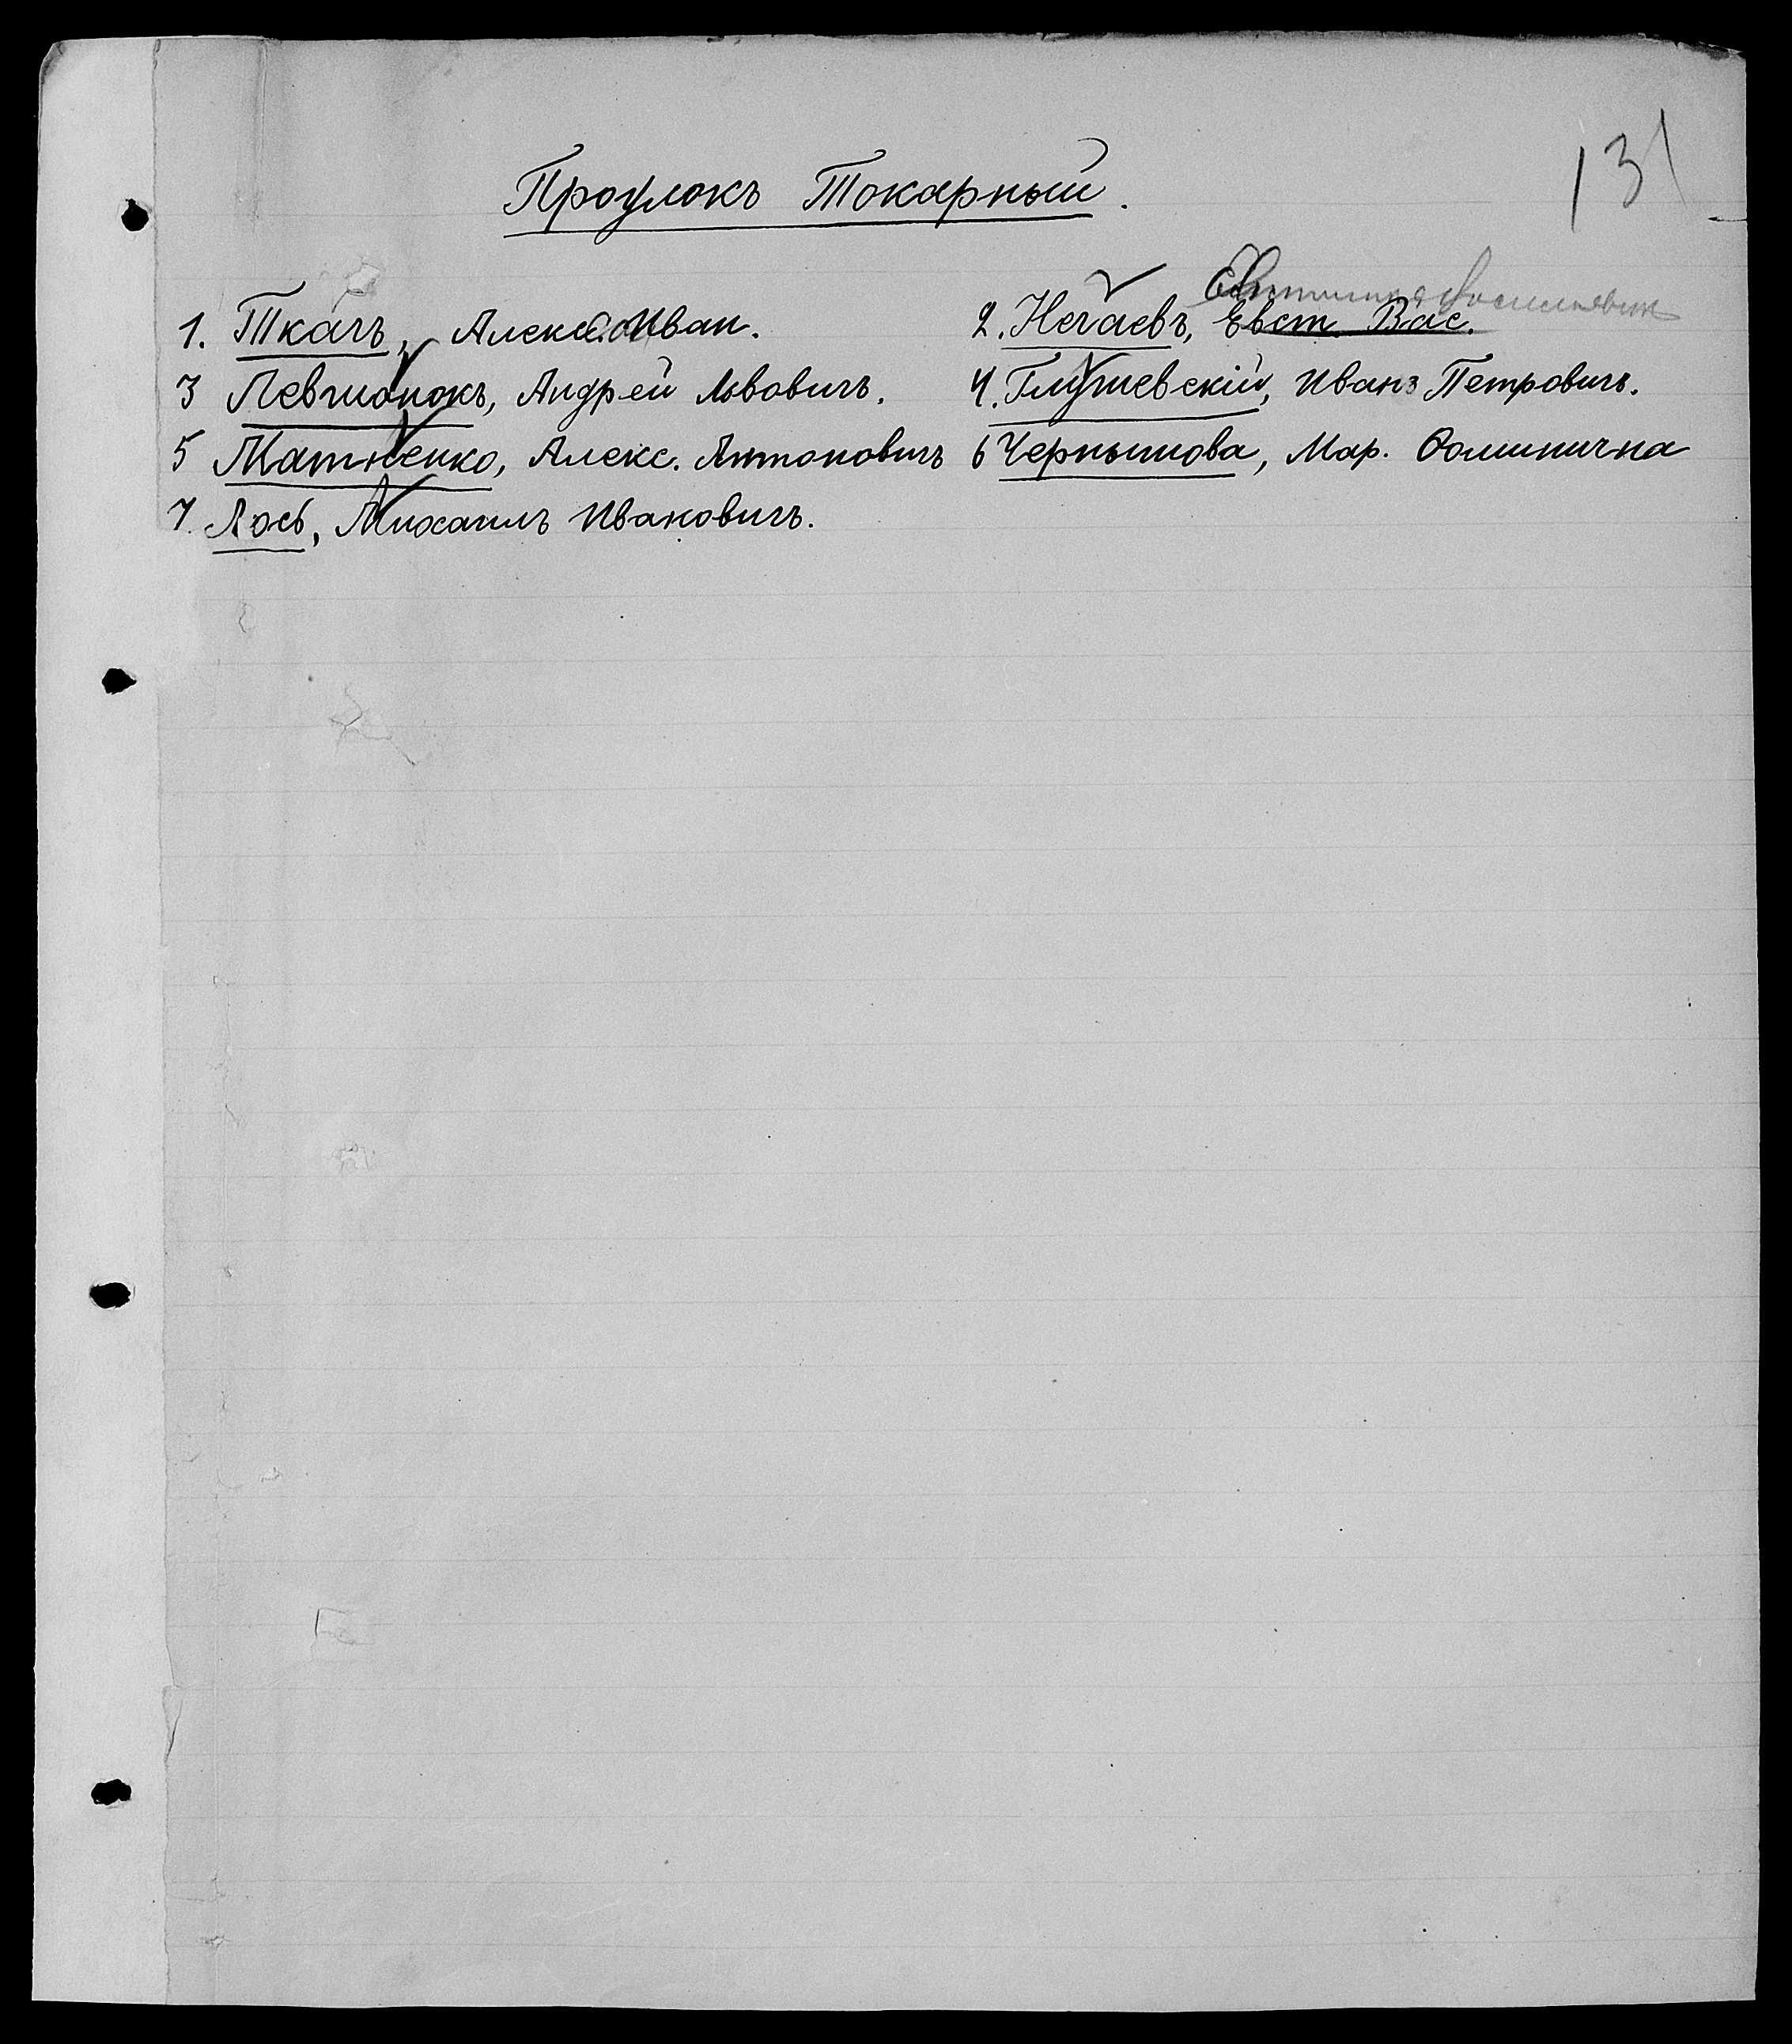 131
Проулокъ Токарный.
1. Ткачъ, Алекс. Иван.
2. Нечаевъ, Евст. Вас.
3 Левчионокъ, Андрей Львовичъ.
4. Глушевскій, Иванъ Петровичъ.
5 Матвѣенко, Алекс. Антоновичъ
6 Чернышова, Мар. Ѳоминична
7. Лось, Михаилъ Ивановичъ.